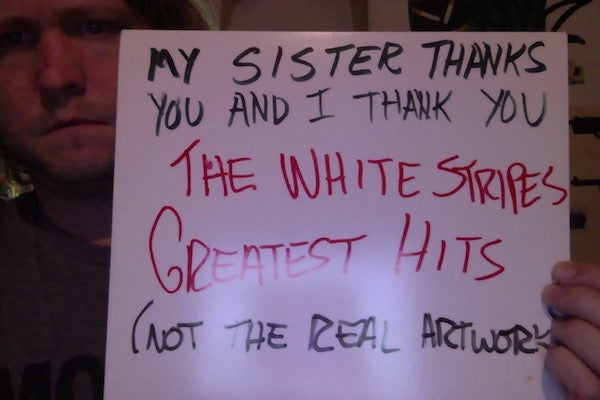 MY SISTER THANKS
YOU AND I THANK YOU
THE WHITE STRIPES
GREATEST HITS
(NOT THE REAL ARTWORK